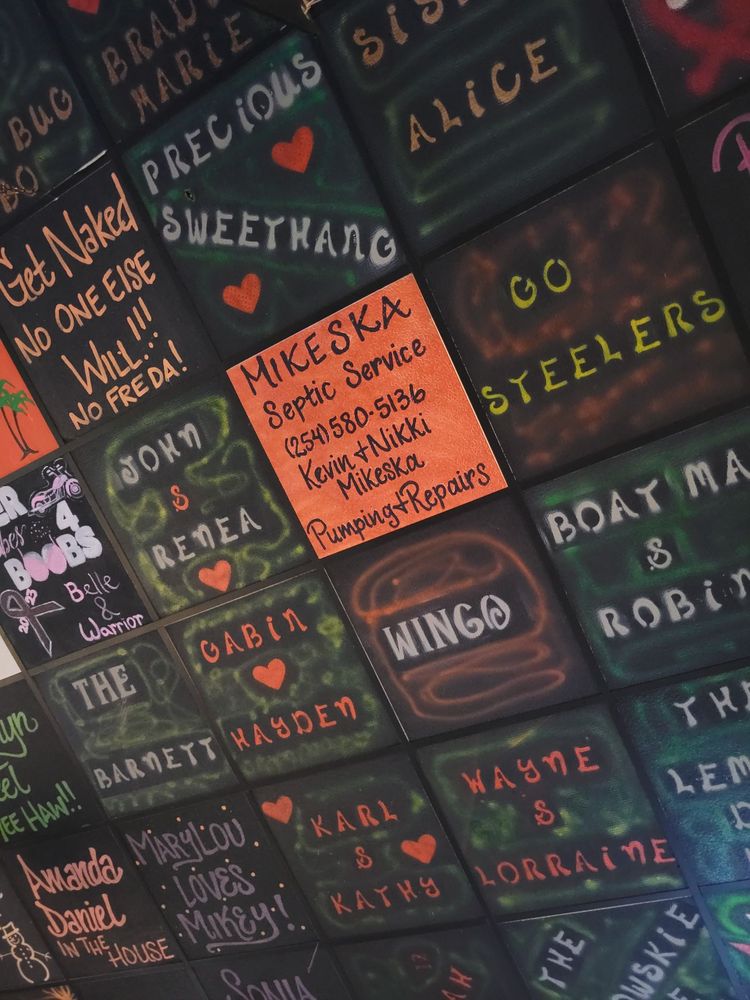 BRAD
MARIE
SIS
ALICE
BUG
BO
PRECIOUS
SWEETHANG
Get Naked
NO ONE ELSE
WILL..!!!
NO FREDA!
GO
STEELERS
MIKESKA
Septic Service
(254) 580-5136
Kevin + Nikki
Mikeska
Pumping + Repairs
JOHN
&
RENEA
ER
4
BOOBS
Belle
&
Warrior
BOAT MA
&
ROBIN
WINGO
GABIN
HAYDEN
THE
BARNETT
TEE HAW!!
WAYNE
&
LORRAINE
THE
LEM
KARL
&
KATHY
MARYLOU
LOVES
MIKEY!
Amanda
Daniel
IN THE
HOUSE
THE
OWSKIE
SONIA